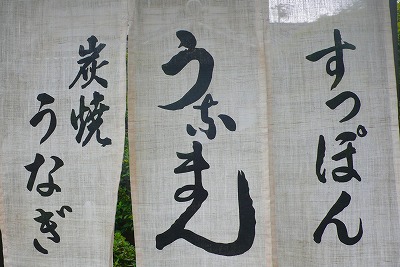 すっぽん
うなまん
炭焼
うなぎ